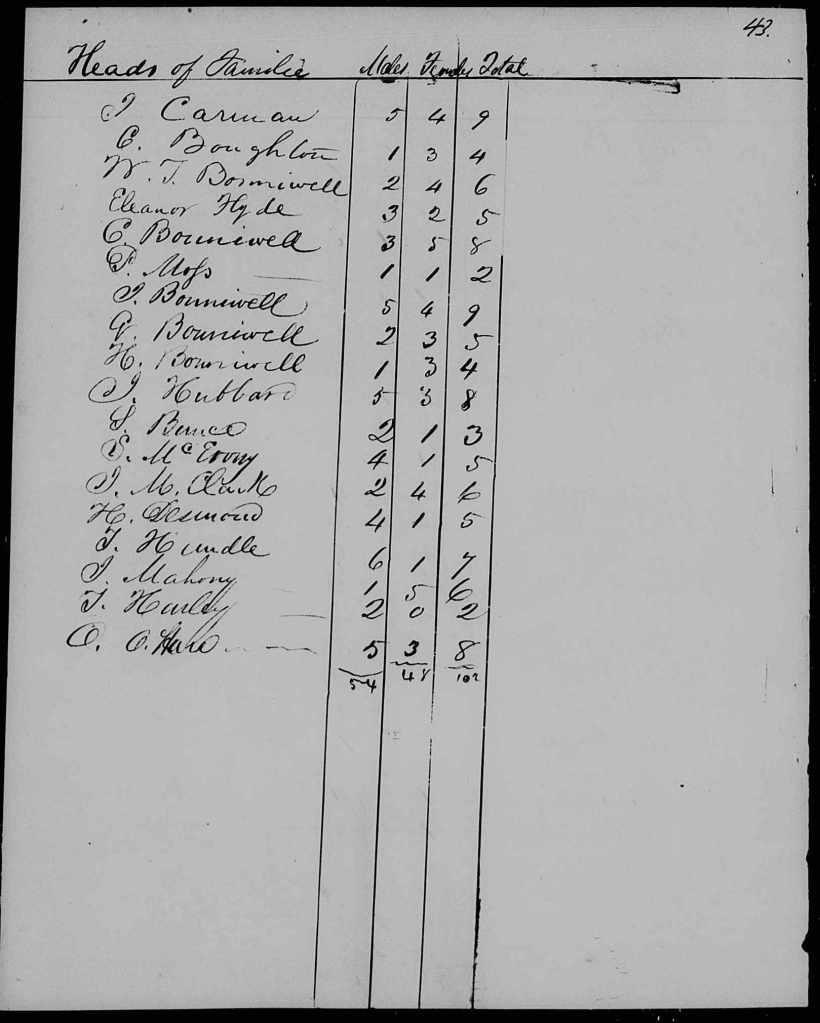 43.
Heads of Familie Males Females Total
J Carman 5 4 9
C. Boughton 1 3 4
W. T. Bonniwell 2 4 6
Eleanor Hyde 3 2 5
C. Bonniwell 3 5 8
P. Moss 1 1 2
J. Bonniwell 5 4 9
G. Bonniwell 2 3 5
H. Bonniwell 1 3 4
J. Hubbard 5 3 8
S. 2 1 3
S. 4 1 5
J. M. Clark 2 4 6
H. Desmond 4 1 5
T. Hundle 6 1 7
J. Mahony 1 5 6
T. Hurley 2 0 2
O. O. Hara 5 3 8
54 48 102